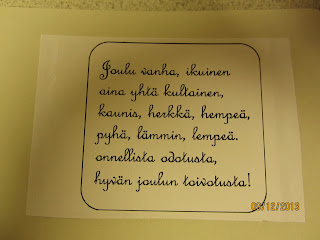 Joulu vanha, ikuinen
aina yhtä kultainen,
kaunis, herkkä, hempeä,
pyhä, lämmin, lempeä.
onnellista odotusta,
hyvän joulun toivotusta!
09/12/2013